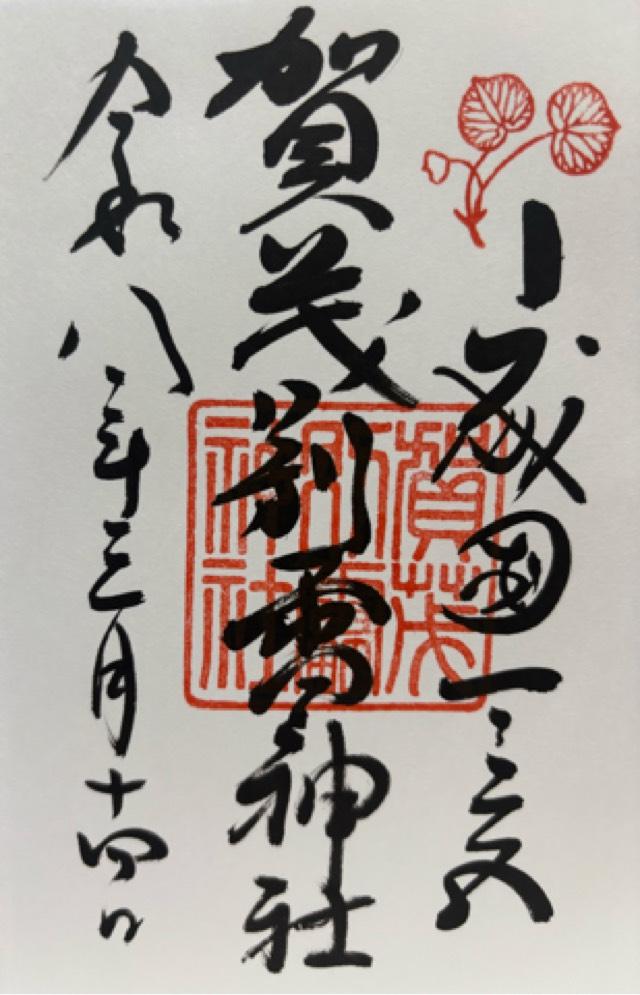 山城國一之宮
賀茂別雷神社
令和八年三月十四日
賀茂
別雷
神社